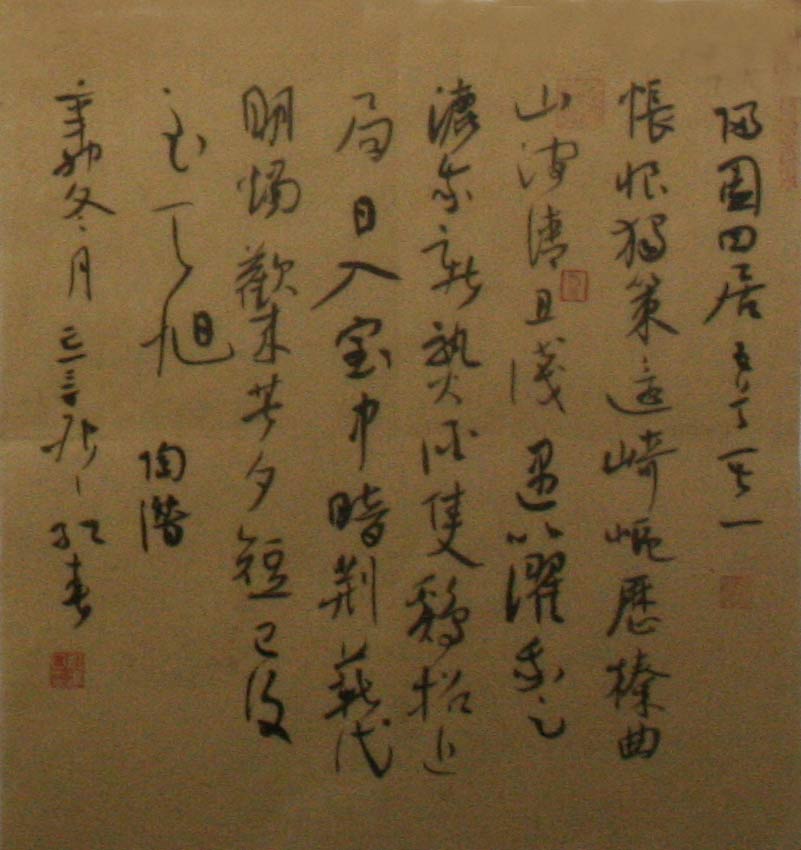 歸園田居
悵恨獨策還崎嶇歷榛曲
山澗清且淺遇以濯吾足
漉吾新熟酒隻鷄招近
局日入室中暗荆薪代
明燭歡來苦夕短已復
至天旭 陶潛
辛卯冬月